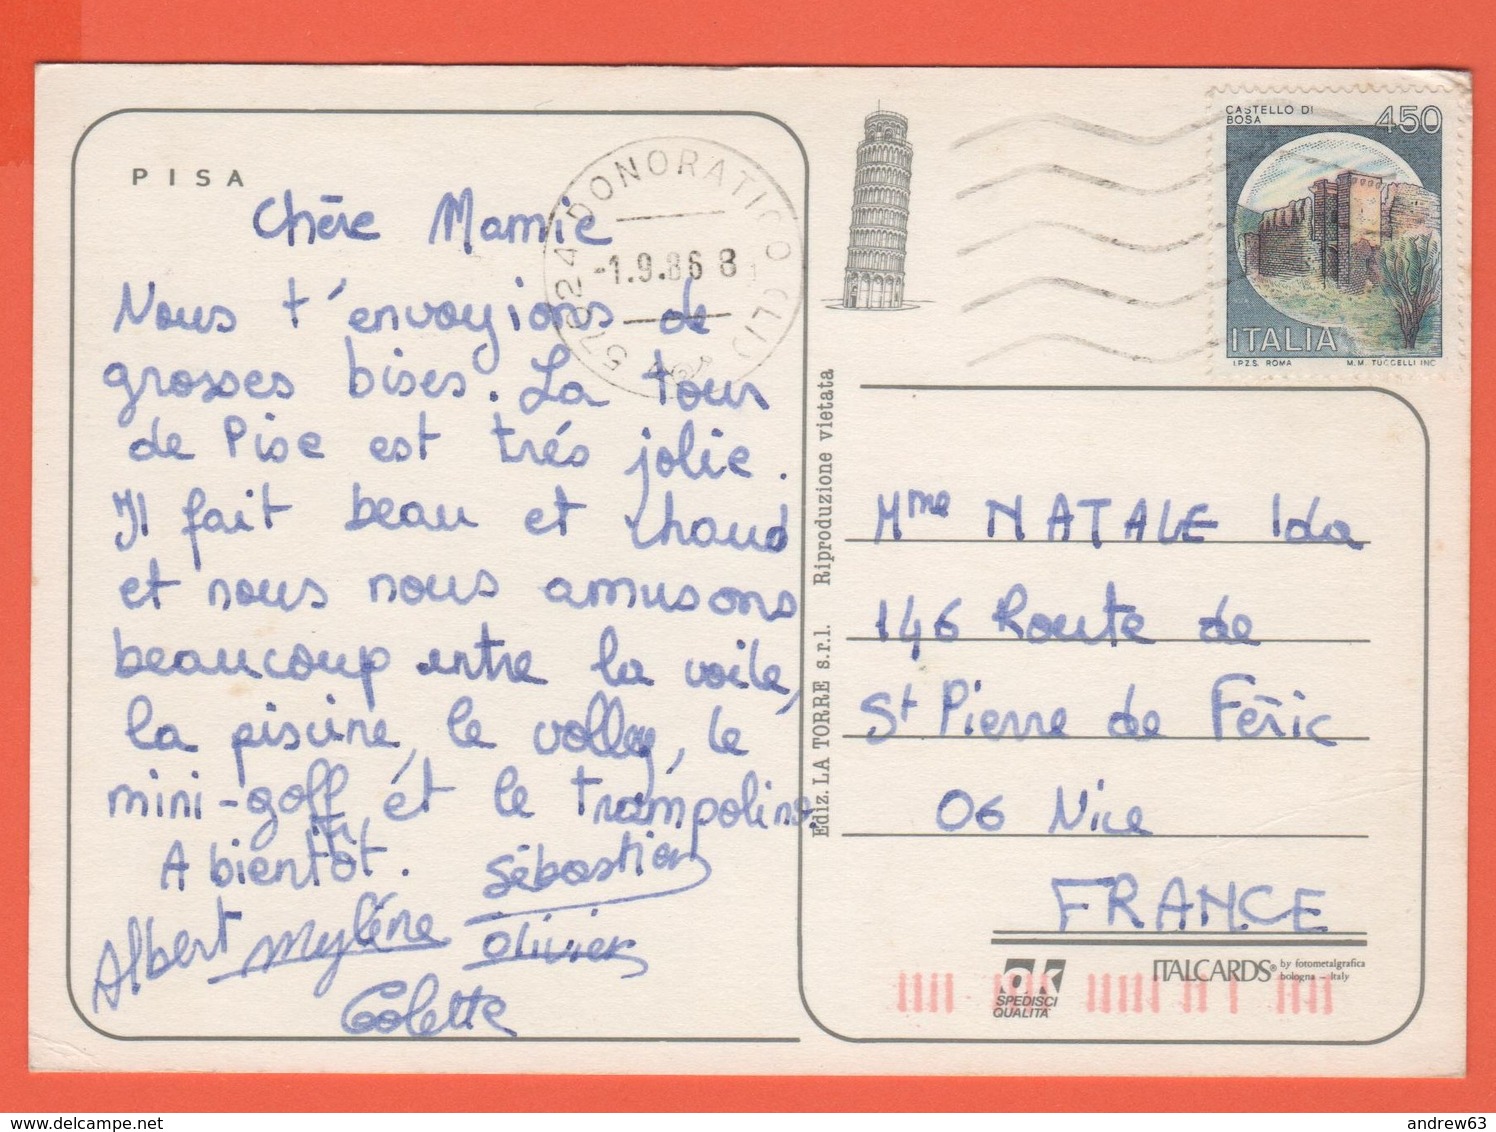 PISA
Chère Mamie
Nous t'envoyions de
grosses bises. La tour
de Pise est trés jolie.
Il fait beau et chaud
et nous nous amusons
beaucoup entre la voile,
la piscine, le volley, le
mini-golf, et le trampoline.
A bientôt.
Sébastien
Albert Mylène Olivier
Colette
57024 DONORATICO (LI)
-1.9.86 8
CASTELLO DI
BOSA
450
ITALIA
I.P.Z.S. ROMA M.M. TUCCELLI INC.
Ediz. LA TORRE s.r.l. Riproduzione vietata
Mme NATALE Ida
146 Route de
St Pierre de Féric
06 Nice
FRANCE
OK
SPEDISCI
QUALITA'
ITALCARDS® by fotometalgrafica
bologna - Italy
delcampe.net
andrew63